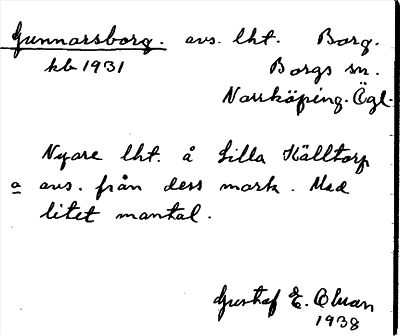 Gunnarsborg. avs. lht. Borg.
kb 1931 Borgs sn.
Norrköping. Ögl.
Nyare lht. å Lilla Källtorp
a avs. från dess mark. Med
litet mantal.
Gustaf E. Olsson
1938